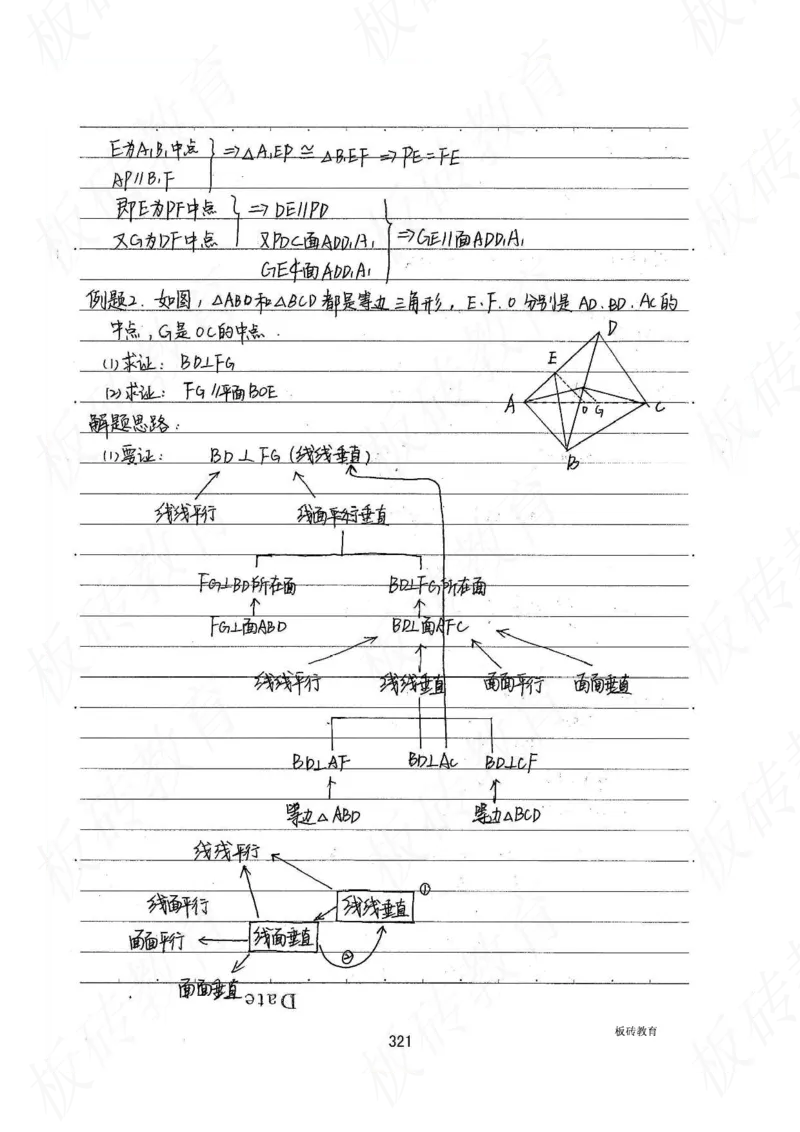 E为A₁B₁中点 } ⇒ △A₁EP ≅ △B₁EF ⇒ PE=FE
AP∥B₁F
即E为PF中点 } ⇒ DE∥PD
又G为DF中点 又PD⊂面ADD₁A₁ ⇒ GE∥面ADD₁A₁
GE⊄面ADD₁A₁
例题2. 如图, △ABD和△BCD都是等边三角形, E.F.O分别是AD.BD.AC的
中点, G是OC的中点.
(1)求证: BD⊥FG
(2)求证: FG∥平面BOE
D
E
A
O G
C
B
解题思路:
(1)要证: BD⊥FG (线线垂直)
线线平行 线面平行垂直
FG⊥BD所在面 BD⊥FG所在面
FG⊥面ABD BD⊥面AFC
线线平行 线线垂直 面面平行 面面垂直
BD⊥AF BD⊥AC BD⊥CF
等边△ABD 等边△BCD
线线平行
①
线面平行 线线垂直
面面平行 线面垂直
②
面面垂直
Date
板砖教育
321
板砖教育